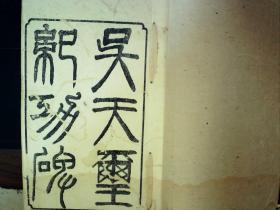 吳天璽
紀功碑